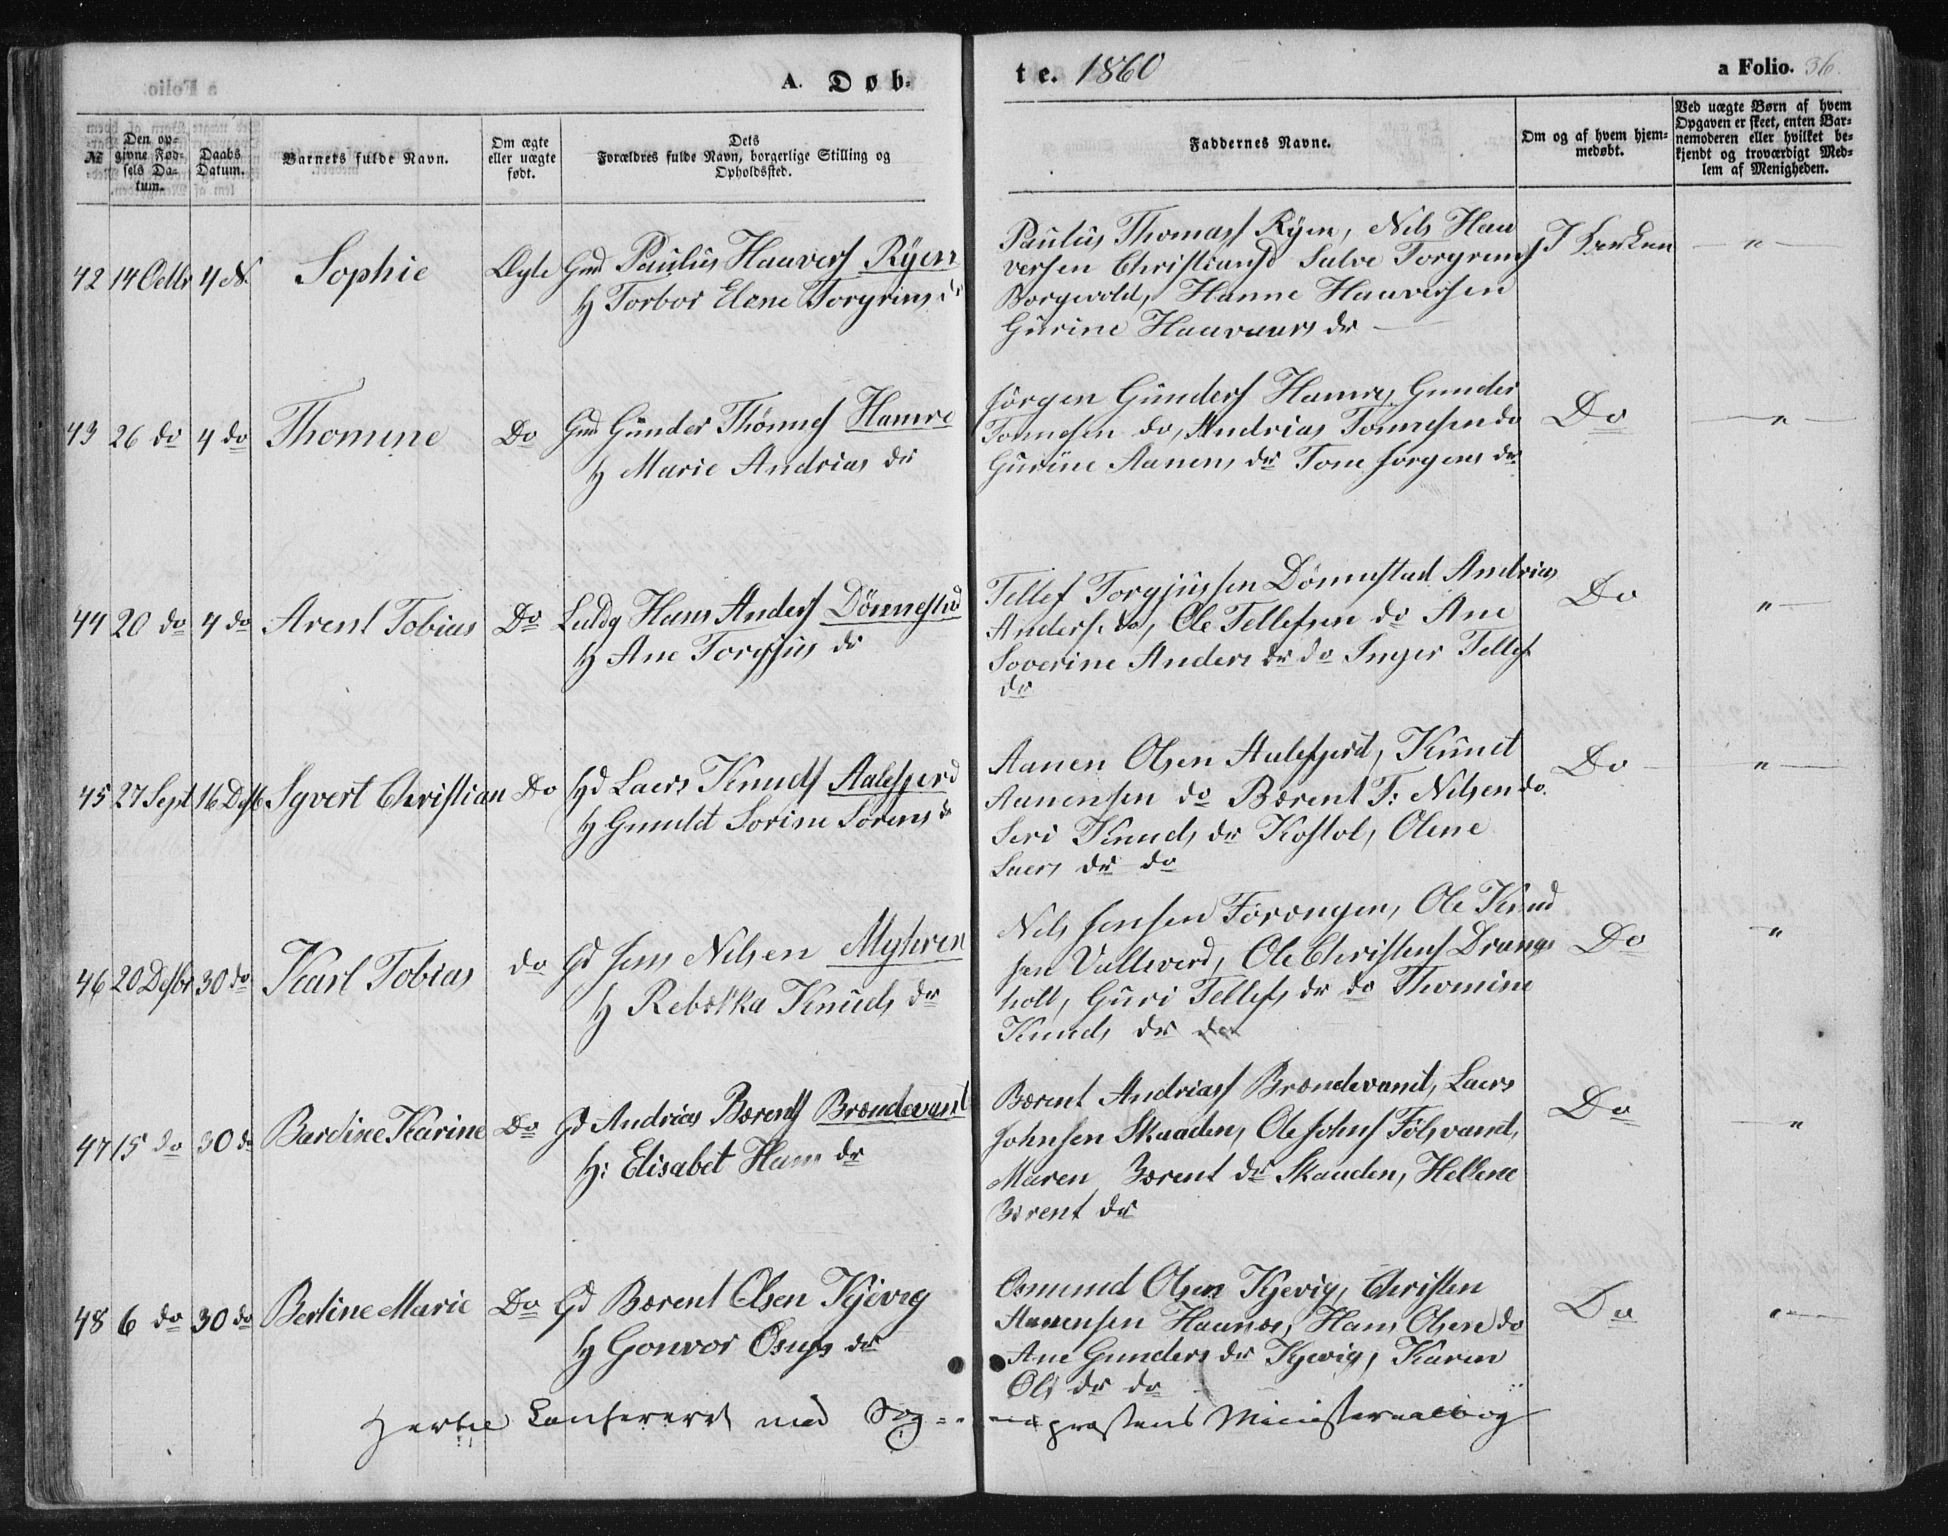 a Folio.
A. Døb-
te. 1860
a Folio. 36.
№
Den op-
givne Fød-
sels Da-
tum.
Daabs
Datum.
Barnets fulde Navn.
Om ægte
eller uægte
født.
Dets
Forældres fulde Navn, borgerlige Stilling og
Opholdssted.
Faddernes Navne.
Om og af hvem hjem-
medøbt.
Ved uægte Børn af hvem
Opgaven er skeet, enten Bar-
nemoderen eller hvilket be-
kjendt og troværdigt Med-
lem af Menigheden.
42 14 Octbr 4 N. Sophie Ægte Gmd Paulus Haavers Rÿen
H Torbor Elene Torgrims dr
Paulus Thomass Rÿen, Nils Haa
versen Christiansd Salve Torgrims
Borgevold, Hanne Haaversen
Gurine Haavaars dr —
I Kirken — " —
43 26 do 4 do Thomine Do Gmd Gunder Thönnes Hamre
H Marie Andrias dr
Jörgen Gunders Hamre, Gunder
Tonnesen do, Andrias Tonnesen do
Gurine Aanens dr Tone Jörgens dr
Do — " —
44 20 do 4 do Arent Tobias Do Hans Anders Dönnestad
H Ane Torgjus dr
Tellef Torgjussen Dönnestad Andrias
Anders. do, Ole Tellefsen do Ane
Soverine Anders dr do Inger Tellefs
dr
Do " —
45 27 Sept 16 Desb Syvert Christian Do Hd Laers Knuds Aalefjerd
H Gunuld Sorine Sörens dr
Aanen Olsen Aalefjerd, Knud
Aanensen do Bærent T: Nilsen do.
Seri Knuds dr Kostol, Olene
Laers dr do
Do — " —
46 20 Desbr 30 do Karl Tobias do Gd Jens Nilsen Myhren
H Rebækka Knuds dr
Nils Jensen Torongen, Ole Knud
sen Valleverd, Ole Christens Drangs
holt, Guri Tellefs dr do Thomine
Knuds dr do
Do "
47 15 do 30 do Bardine Karine Do Gd Andrias Bærents Brændevand
H: Elisabet Hans dr
Bærent Andriass Brændevand, Laers
Johnsen Skaaden, Ole Johns Fölsvand,
Maren Bærent dr Skaaden, Hellene
Bærent dr
Do — "
48 6 do 30 do Bertine Marie Do Gd Bærent Olsen Kjevig
H Gonvor Osufs dr
Osmund Olsen Kjevig, Christen
Aanensen Haanes, Hans Olsen do
Ane Gunders dr Kjevig, Karen
Ols dr do
Do " —
Hertil Confereret med Sog-
nepræstens Ministerialbog